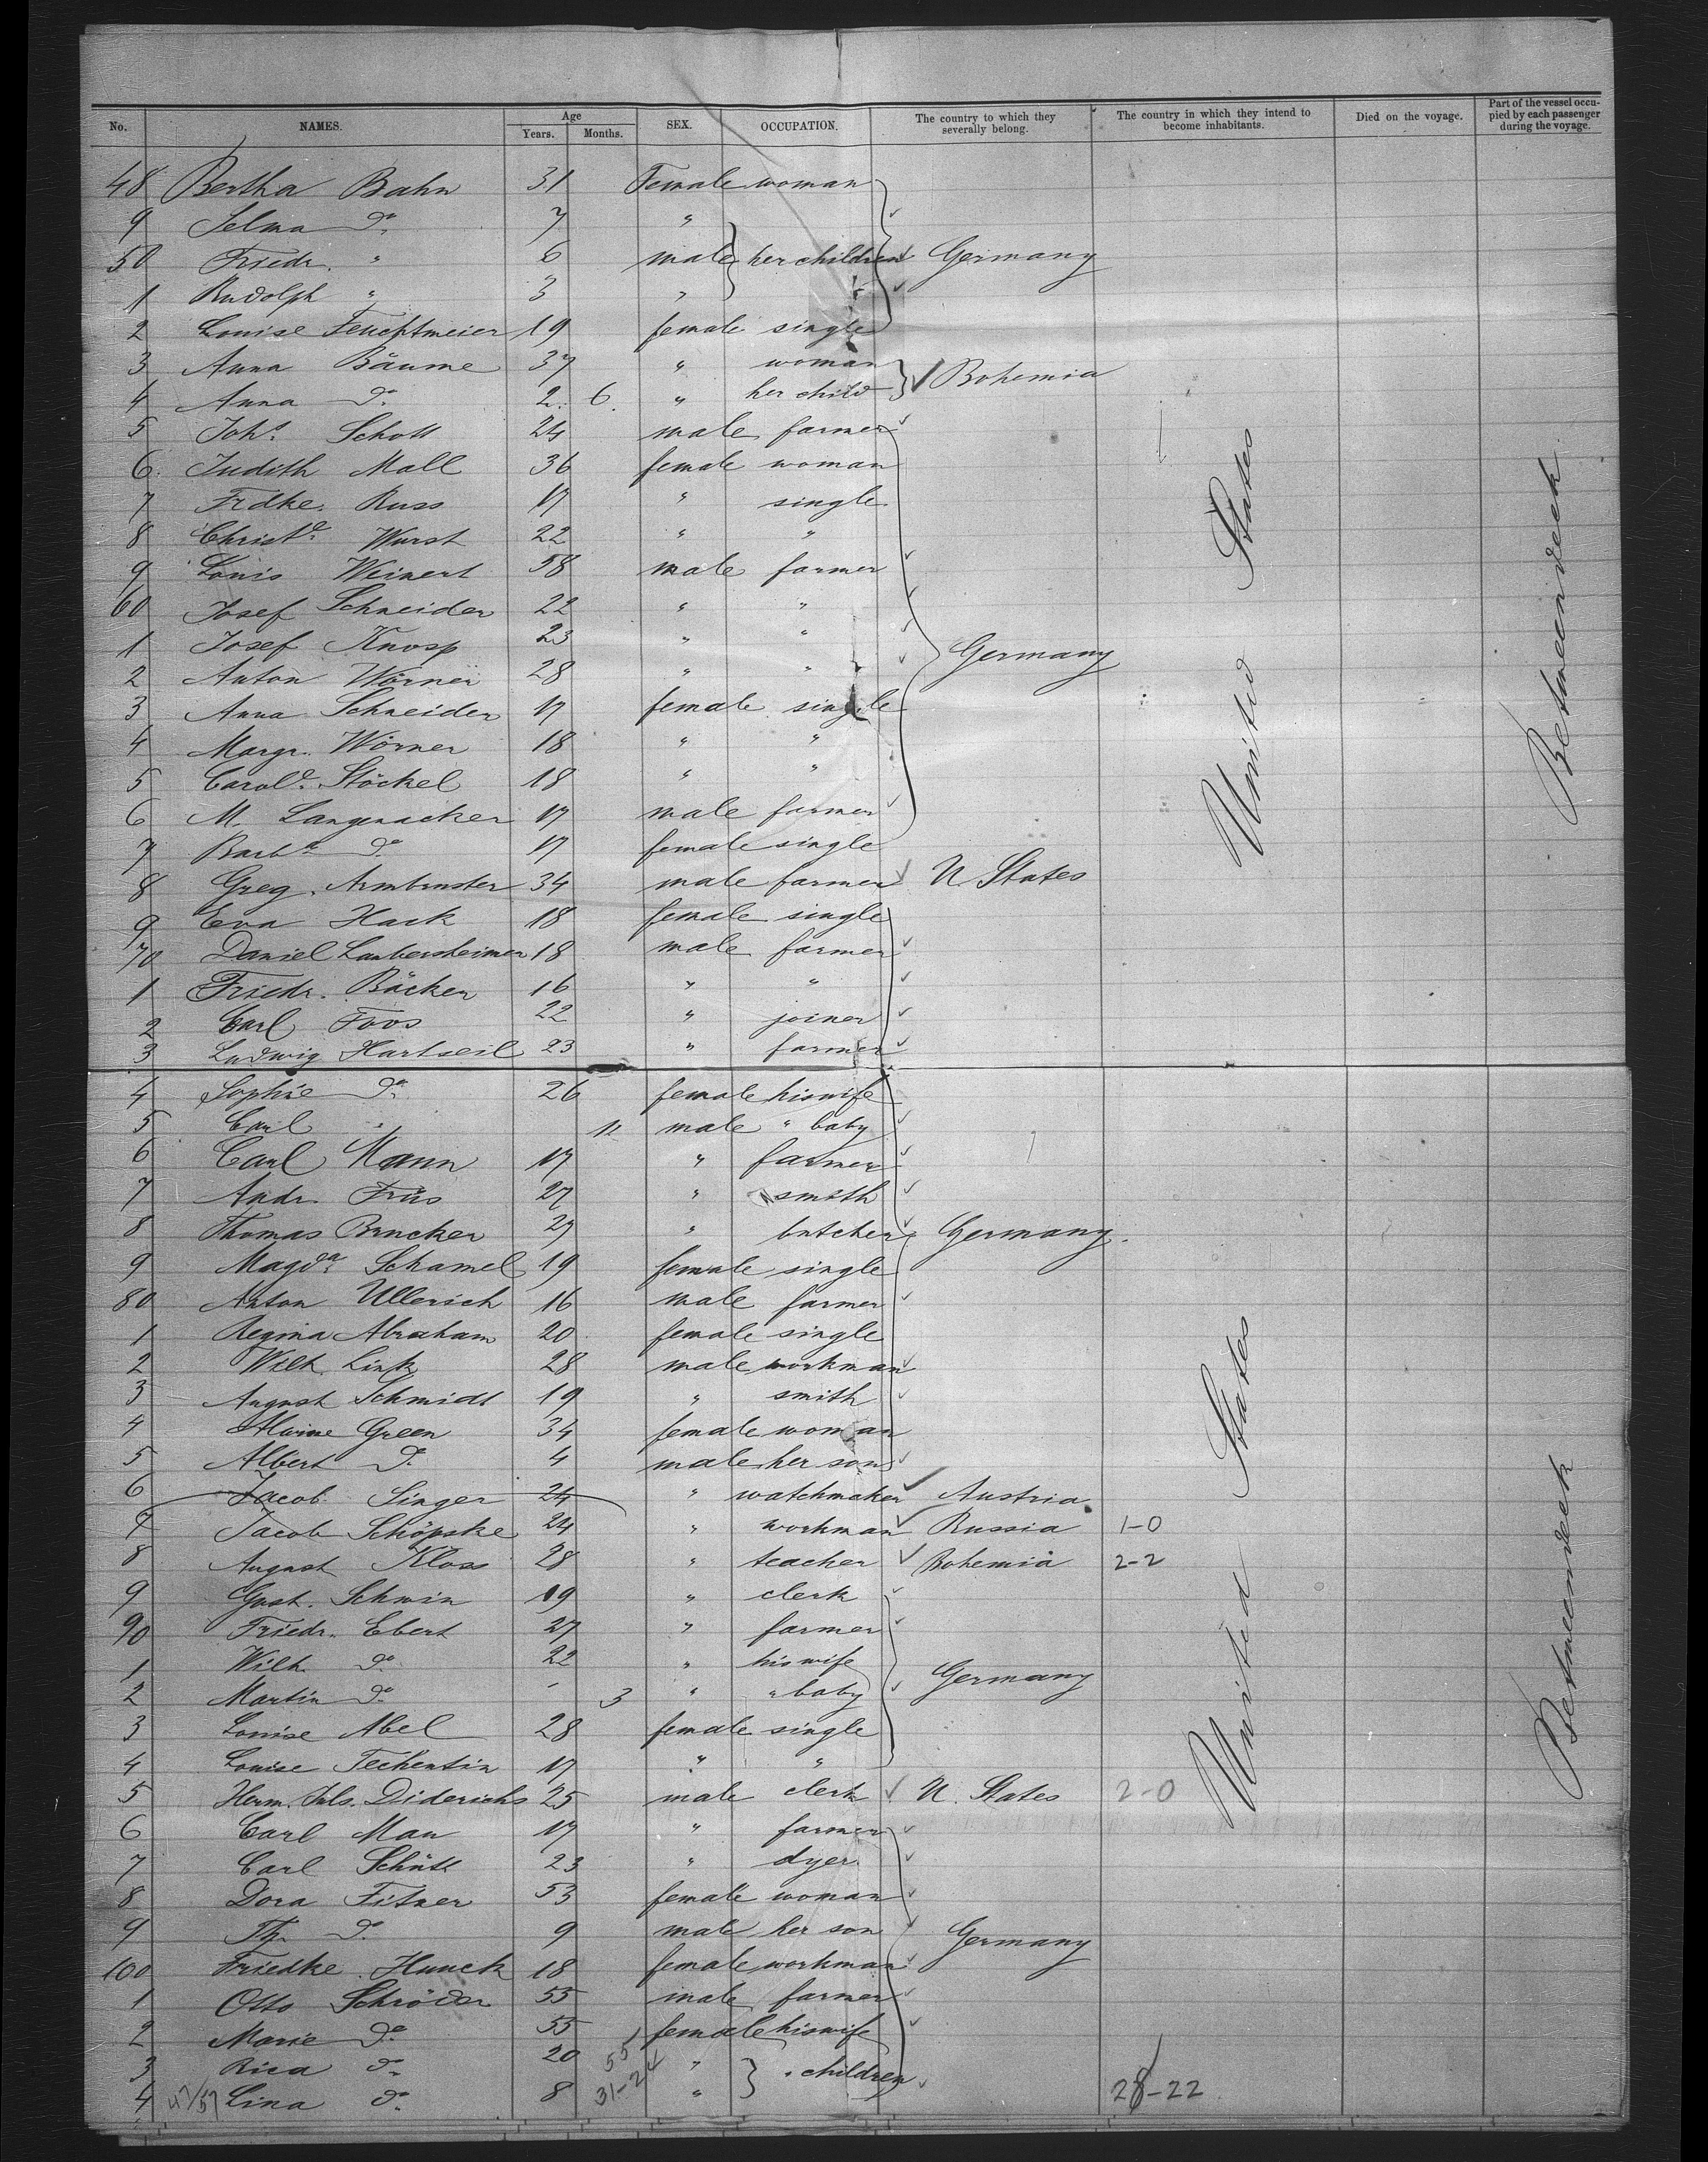 No. NAMES. Age Years. Months. SEX. OCCUPATION. The country to which they severally belong. The country in which they intend to become inhabitants. Died on the voyage. Part of the vessel occupied by each passenger during the voyage.
48 Bertha Bahn 31 Female woman
9 Selma do 7 "
50 Friedr. " 6 male her children Germany
1 Rudolph " 3 "
2 Louise Feuchtmeier 19 female single
3 Anna Bäume 37 " woman Bohemia
4 Anna do 2. 6. " her child
5 Johs Scholl 24 male farmer
6. Judith Mall 36 female woman
7 Frdke. Russ 17 " single
8 Christe Wurst 22 " "
9 Louis Weinert 58 male farmer
60 Josef Schneider 22 " "
1 Josef Knosp 23 " " Germany
2 Anton Wörner 28 " "
3 Anna Schneider 17 female single
4 Margr. Wörner 18 " "
5 Carole Stöckel 18 " "
6 M. Langenacker 17 male farmer
7 Barba do 17 female single
8 Greg. Armbruster 34 male farmer U States
9 Eva Hack 18 female single
70 Daniel Laubersheimer 18 male farmer
1 Friedr. Bäcker 16 " "
2 Carl Foos 22 " joiner
3 Ludwig Hartseil 23 " farmer
4 Sophie do 26 female his wife
5 Carl " 11 male " baby
6 Carl Mann 17 " farmer
7 Andr. Früs 27 " smith
8 Thomas Brucker 27 " butcher Germany.
9 Magda Schamel 19 female single
80 Anton Ullerich 16 male farmer
1 Regina Abraham 20 female single
2 Wilh. Link 28 male workman
3 August Schmidt 19 " smith
4 Alwine Green 34 female woman
5 Albert do 4 male her son
6 Jacob Singer 24 " watchmaker Austria
7 Jacob Schöpske 24 " workman Russia 1-0
8 August Kloss 28 " teacher Bohemia 2-2
9 Gust. Schwin 19 " clerk
90 Friedr. Ebert 27 " farmer
1 Wilh. do 22 " his wife Germany
2 Martin do - 3 " " baby
3 Louise Abel 28 female single
4 Louise Techentin 17 " "
5 Herm. Juls. Diderichs 25 male clerk U. States 2-0
6 Carl Mau 17 " farmer
7 Carl Schütt 23 " dyer
8 Dora Fitzer 53 female woman
9 Th. do 9 male her son Germany
100 Friedke Hunck 18 female workman
1 Otto Schröder 55 male farmer
2 Marie do 55 female his wife
3 Rica do 20 " " children
4 Lina do 8 "
47/57 55 31-24 28-22
United States
United States
Betweendeck
Betweendeck